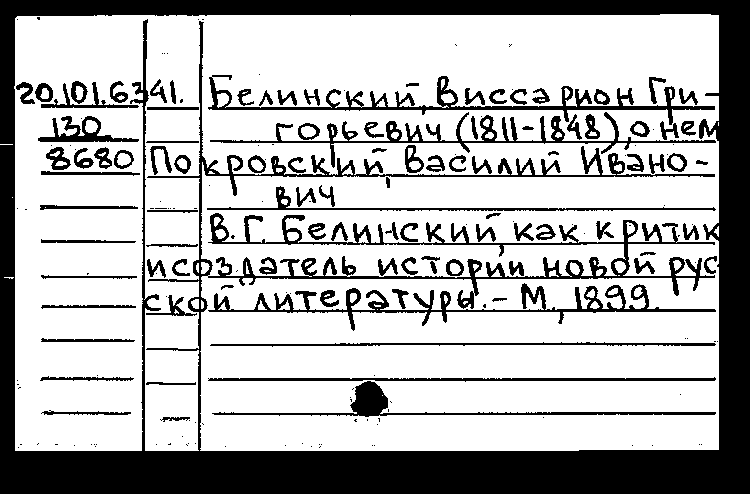 20.101.6.341. Белинский, Виссарион Гри-
130 горьевич (1811-1848), о нем
8680 Покровский, Василий Ивано-
вич
В.Г. Белинский, как критик
и создатель истории новой рус-
ской литературы. - М., 1899.